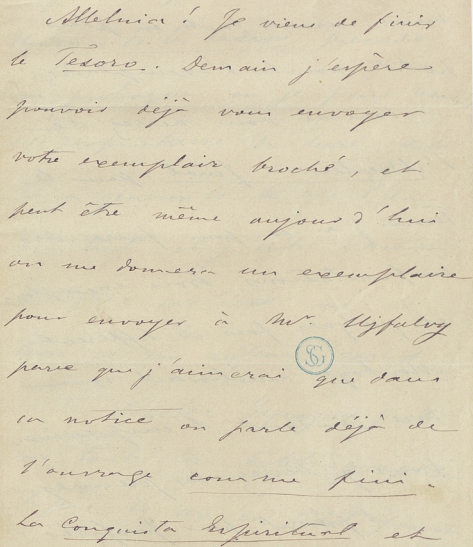 Alleluia! Je viens de finir
le Tesoro. Demain j'espère
pouvoir déjà vous envoyer
votre exemplair broché, et
peut être même aujourd'hui
on me donnera un exemplaire
pour envoyer à Mr. Ujfalvy
parce que j'aimerai que dans
sa notice on parle déjà de
l'ouvrage comme fini.
La Conquista Espiritual et